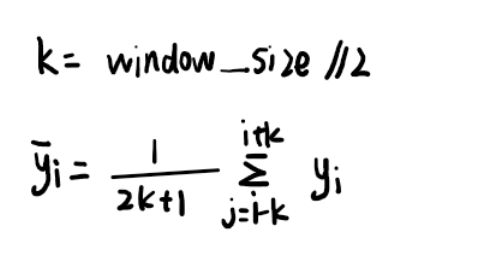 k = window_size //2
ȳi = 1/(2k+1) Σ_{j=i-k}^{i+k} yi